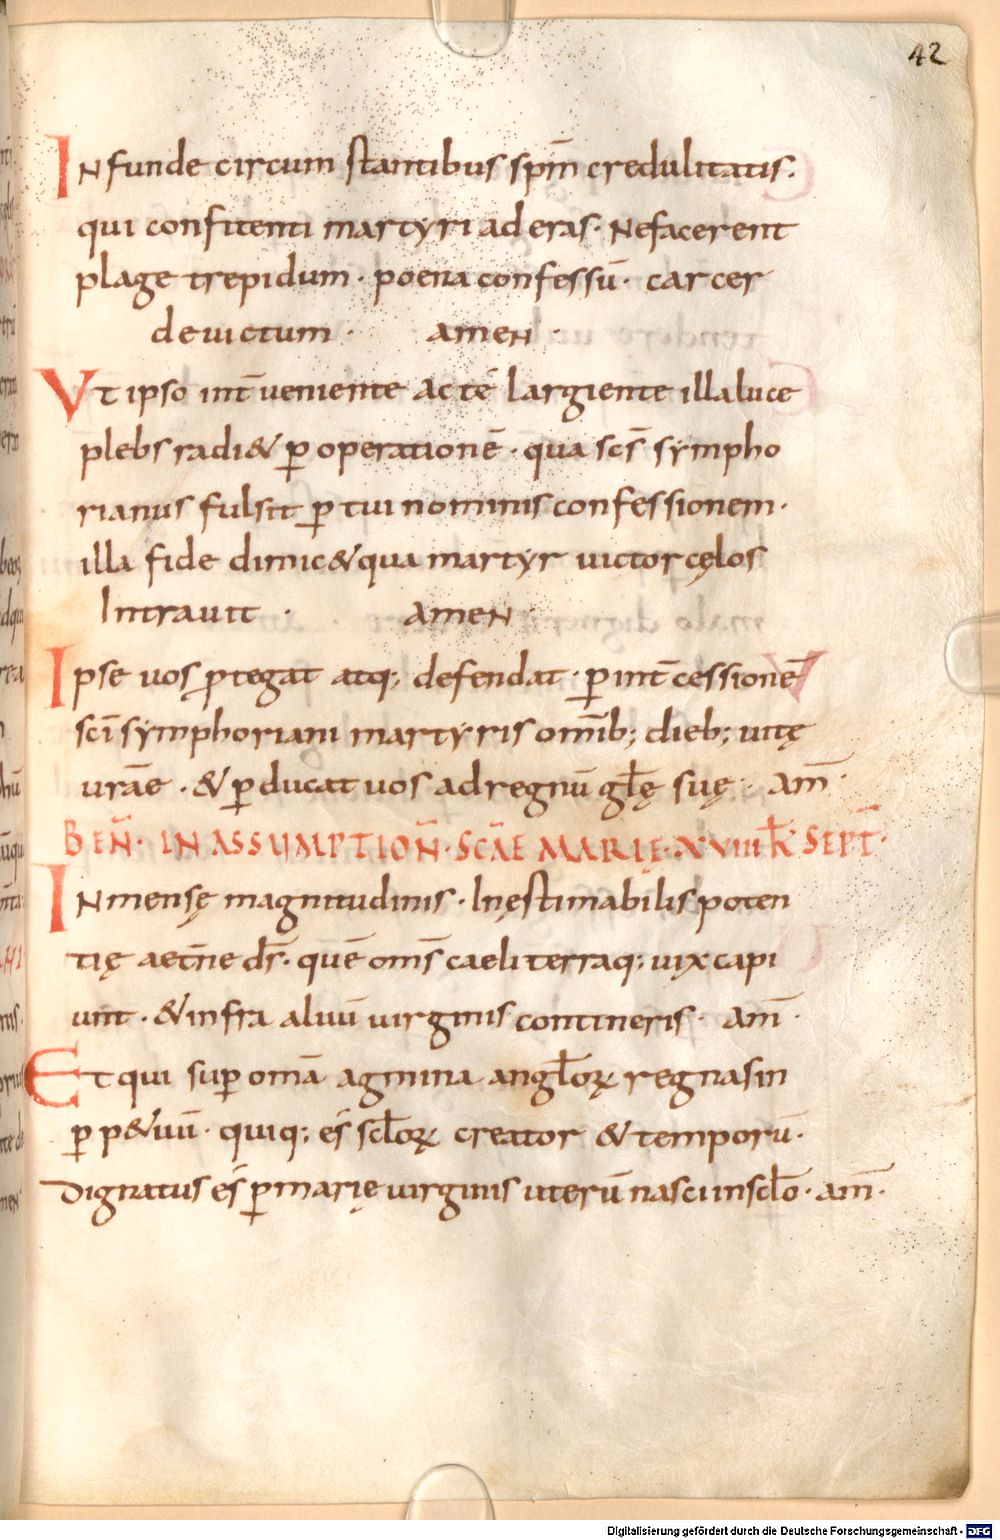 42
INfunde circum stantibus spm̄ credulitatis.
qui confitenti martyri aderas· Nefacerent
plage trepidum· poena confessū· carcer
deuictum· AMEN·
VT ipso int̄ueniente ac té largiente illa luce
plebs radi& ꝑ operationē· qua scs̄ sympho
rianus fulsit ꝑ tui nominis confessionem·
illa fide dimic& qua martyr uictor cęlos
Intrauit· AMEN·
Ipse uos ꝓtegat atq; defendat· ꝑ int̄cessionē
scī symphoriani martyris omīb; dieb; uitę
urāe· & ꝑducat uos ad regnū gl̄ę suę· am̄·
BEN̄· IN ASSUMPTION̄· SCĀE MARIĘ· XVIII K̄ SEPT̄·
INmensę magnitudinis· Inęstimabilis poten
tię aetn̄e ds̄· quē om̄s caeli terraq; uix capi
unt· & infra aluū uirginis contineris· am̄·
ET qui suꝑ omā agmina angl̄oꝝ regnas in
ꝑp&uū· quiq; és scl̄oꝝ creator & temporū·
Dignatus és ꝑ marię uirginis uterū nasci in scl̄o· am̄·
Digitalisierung gefördert durch die Deutsche Forschungsgemeinschaft - DFG